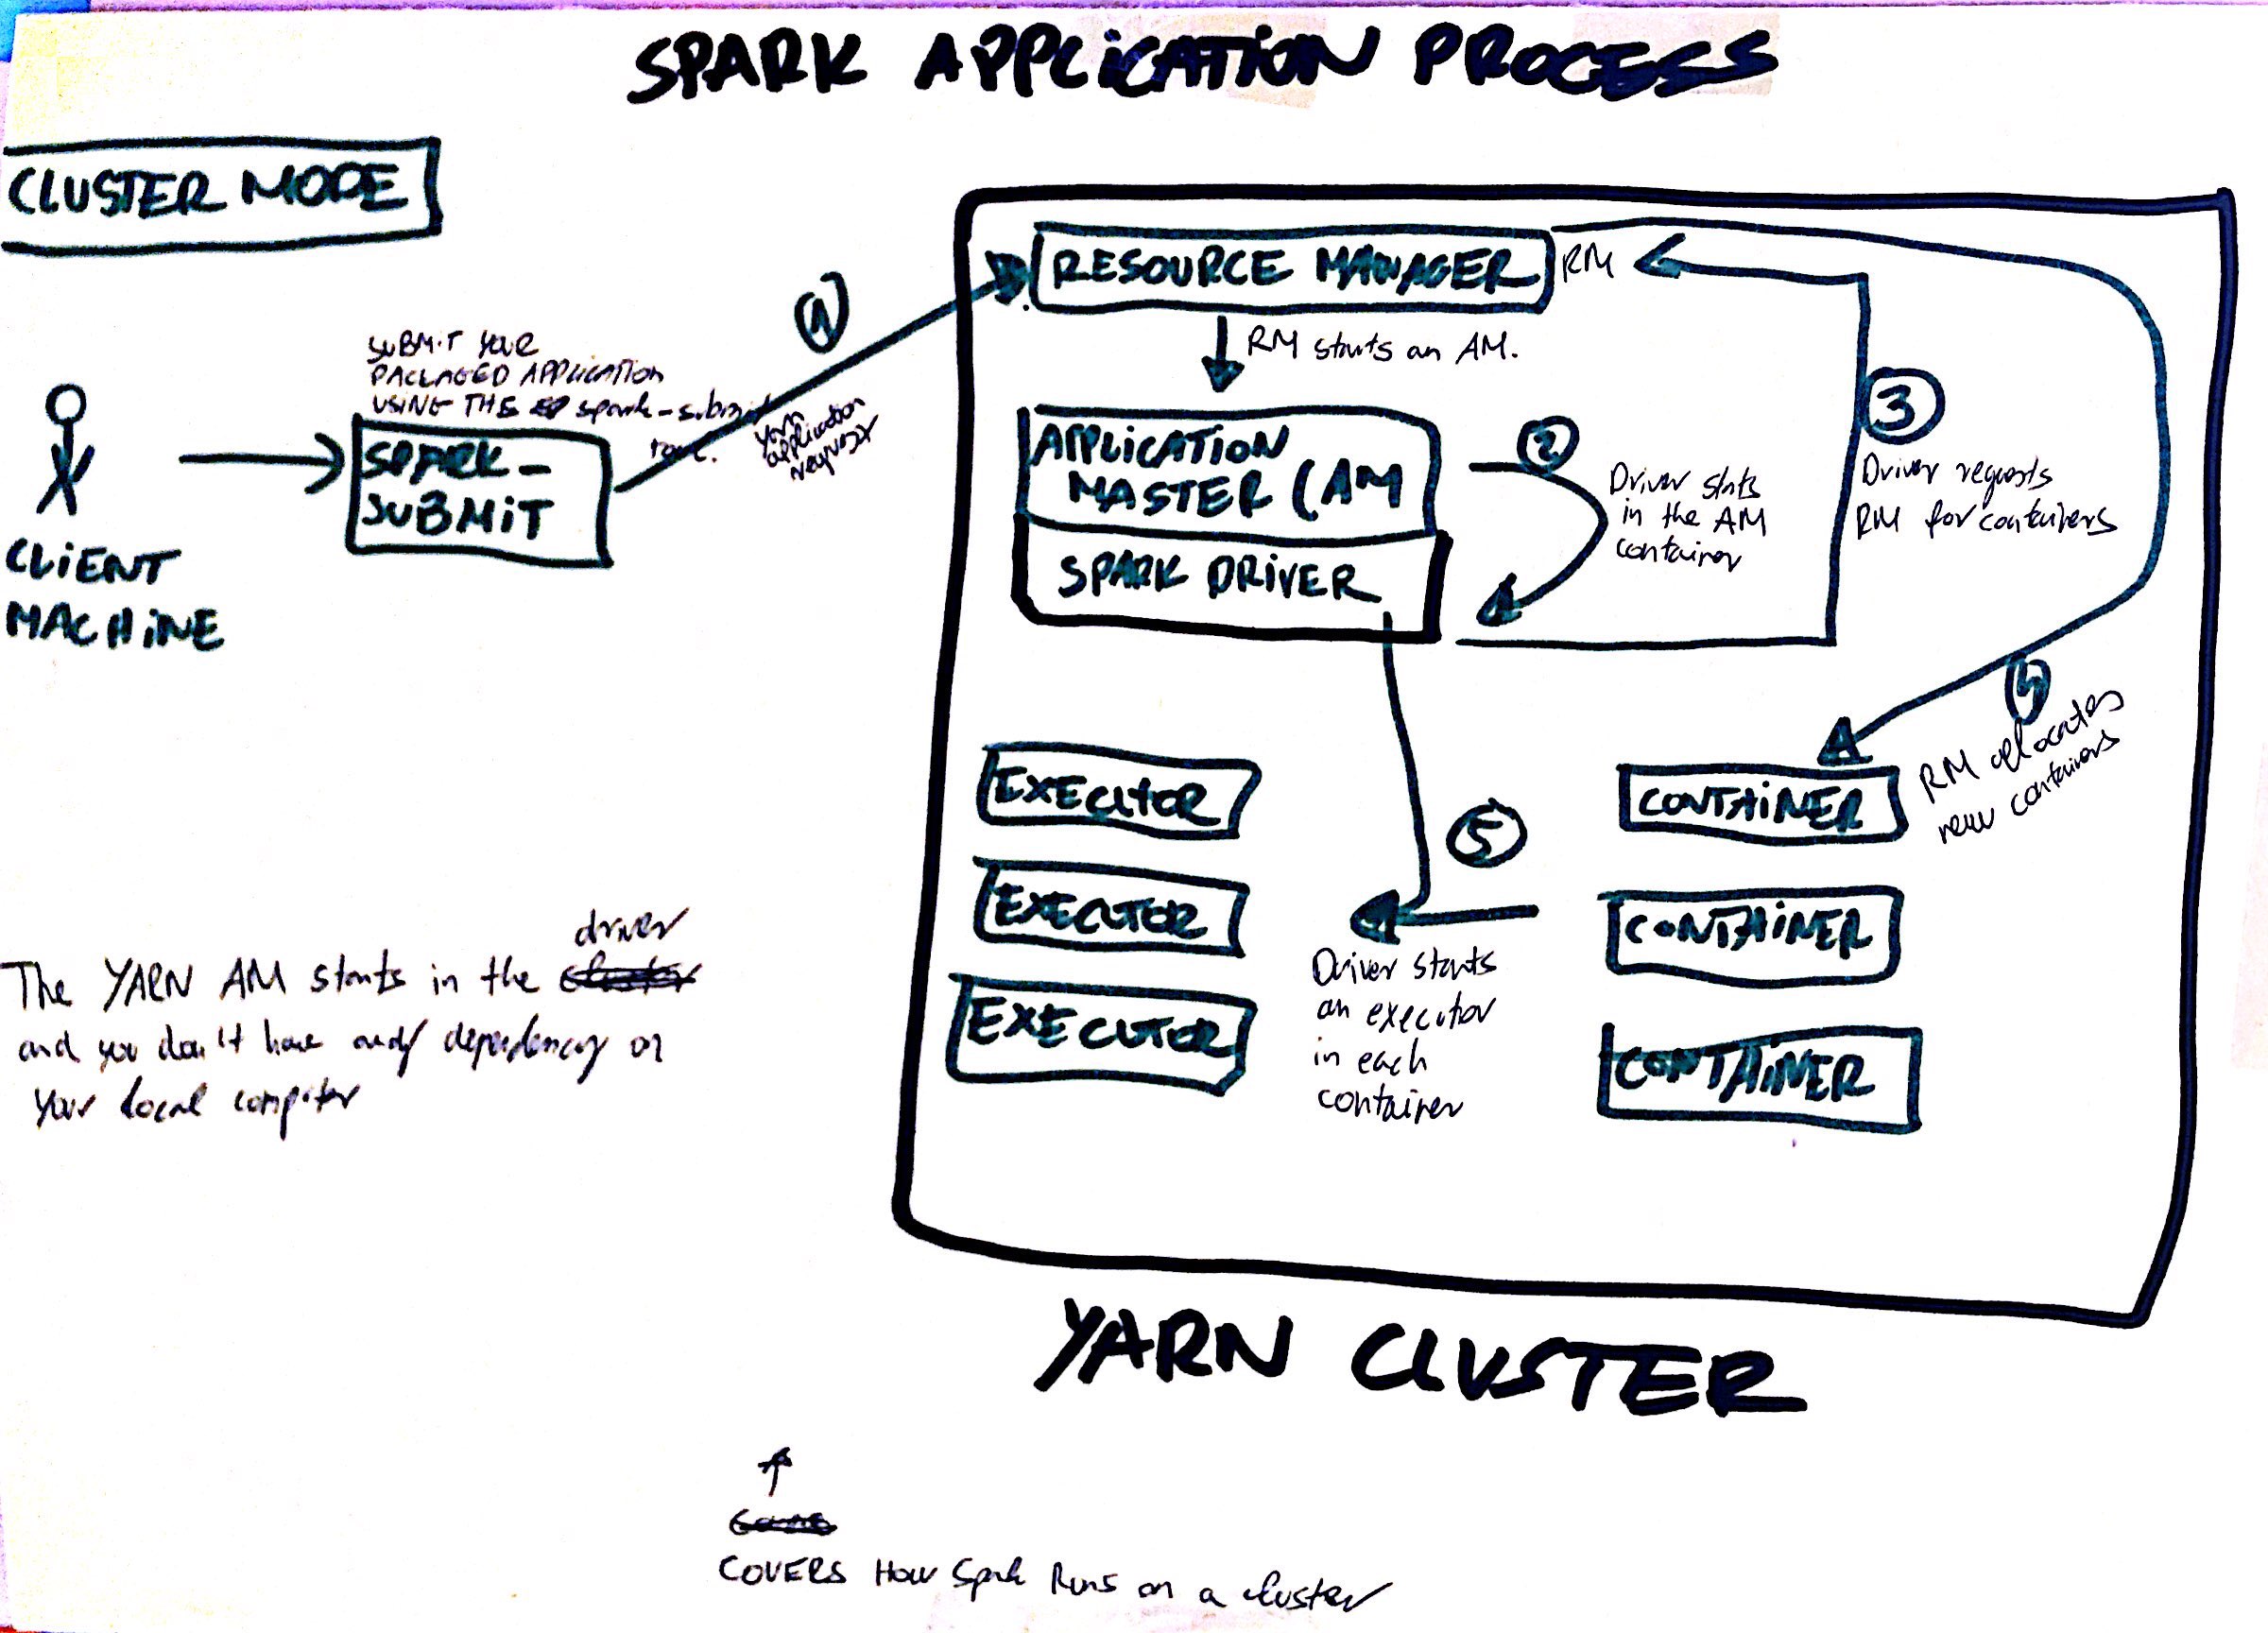 SPARK APPLICATION PROCESS
CLUSTER MODE
CLIENT
MACHINE
SUBMIT YOUR
PACKAGED APPLICATION
USING THE spark-submit
tool.
SPARK-
SUBMIT
1
yarn
application
request
RESOURCE MANAGER
RM
RM starts an AM.
APPLICATION
MASTER (AM
SPARK DRIVER
2
Driver starts
in the AM
container
3
Driver requests
RM for containers
4
RM allocates
new containers
EXECUTOR
EXECUTOR
EXECUTOR
5
Driver starts
an executor
in each
container
CONTAINER
CONTAINER
CONTAINER
YARN CLUSTER
driver
The YARN AM starts in the cluster
and you don't have any dependency on
your local computer
COVERS How Spark Runs on a cluster